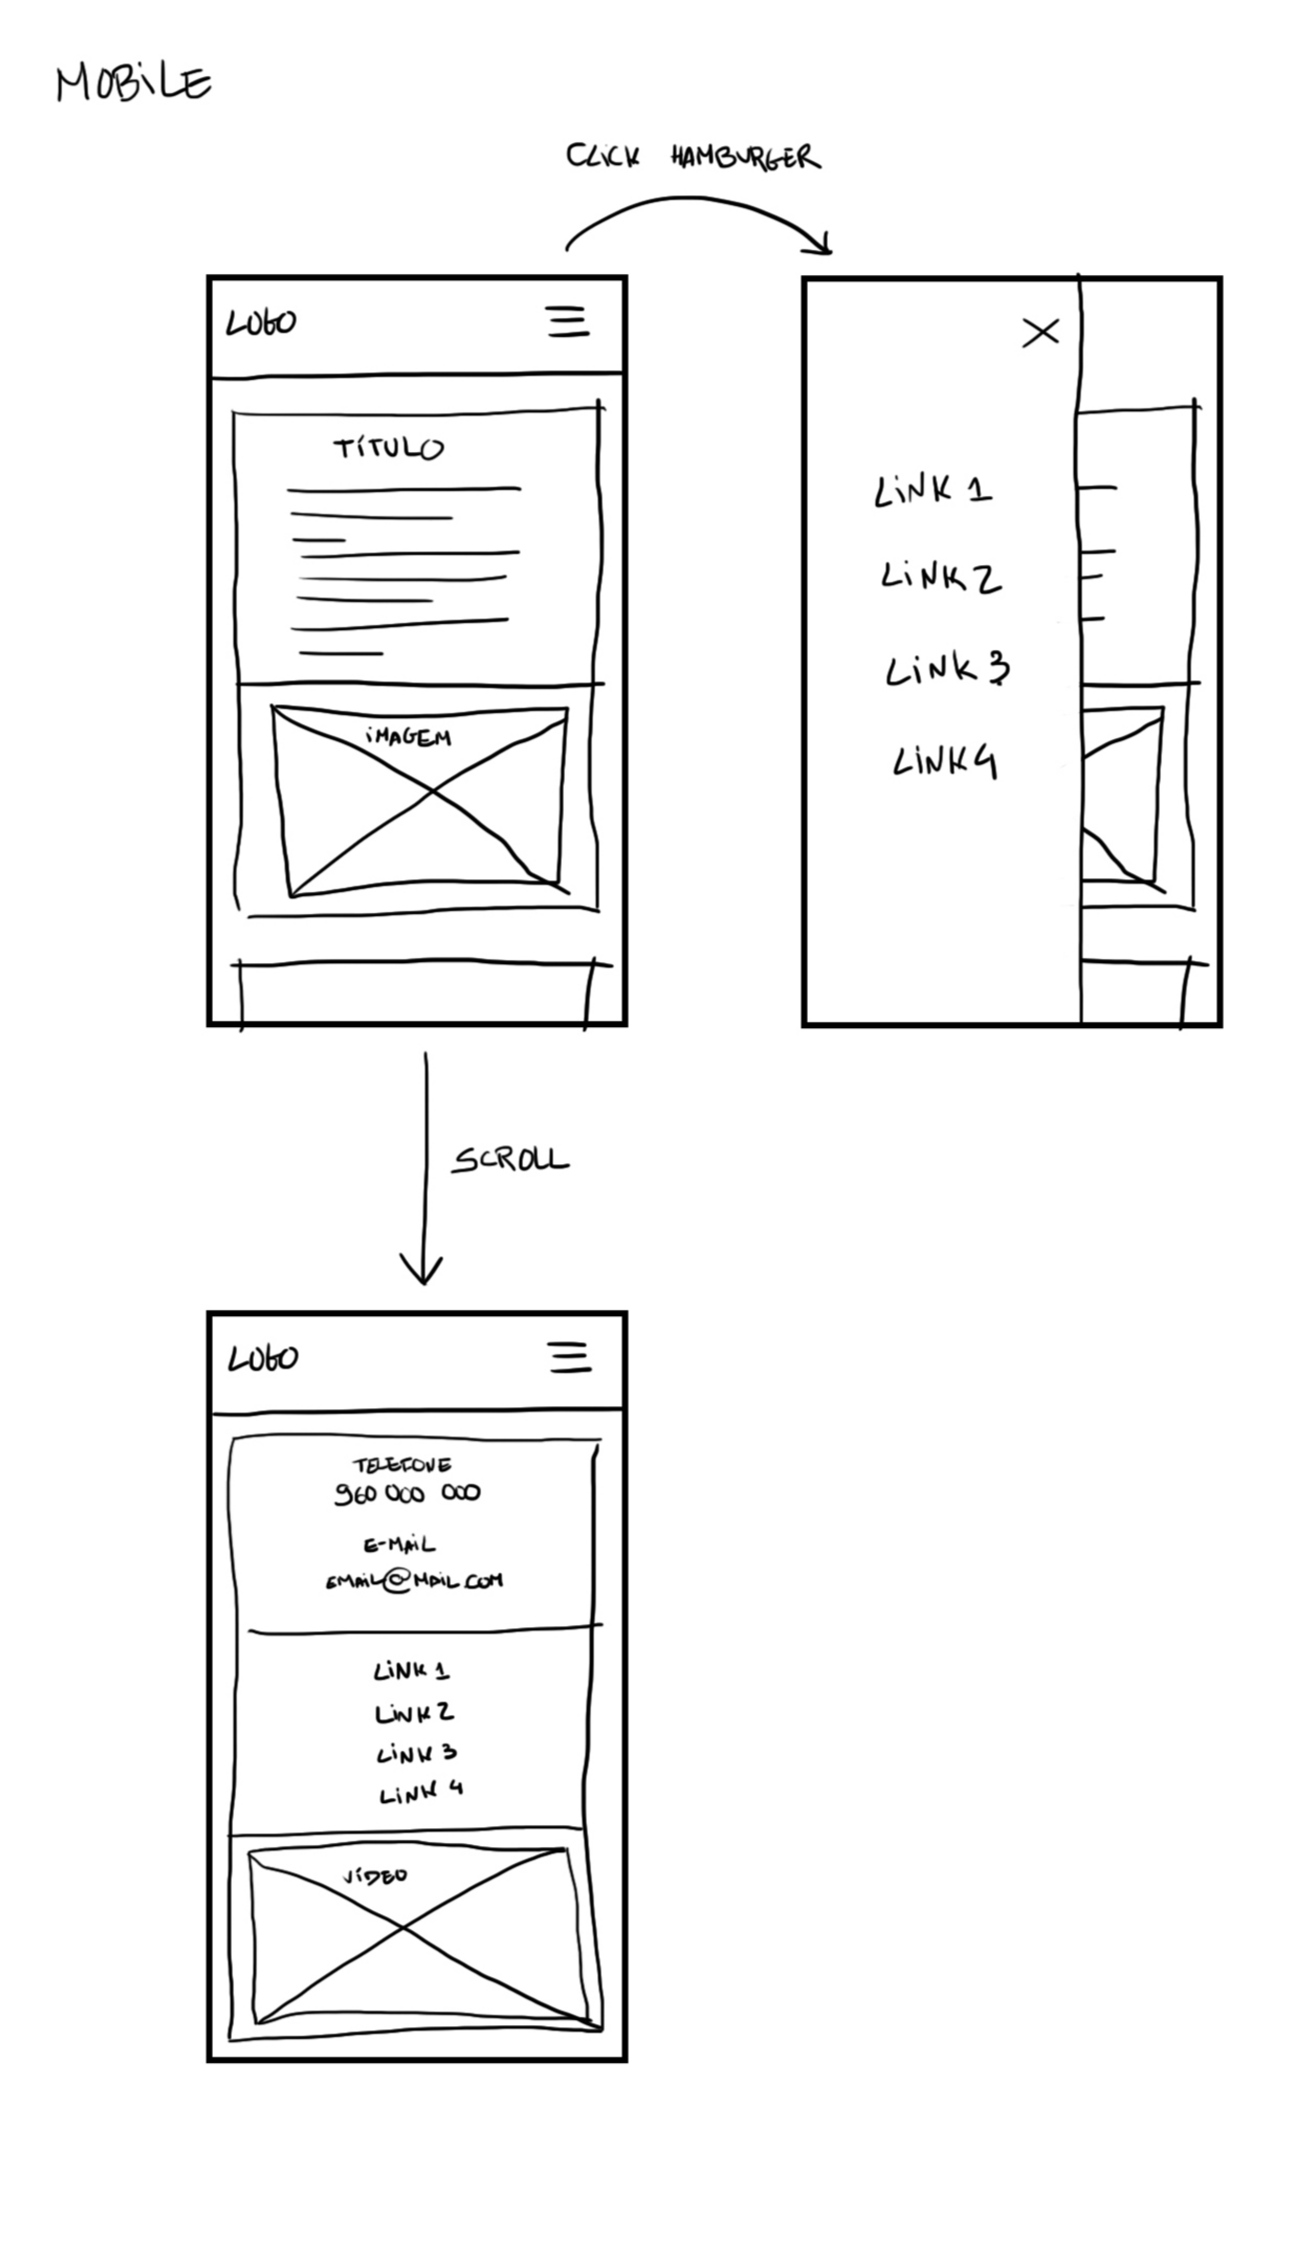 MOBiLE
CLiCK HAMBURGER
LOGO
TÍTULO
iMAGEM
LiNK 1
LiNK 2
LiNK 3
LiNK 4
SCROLL
LOGO
TELEFONE
960 000 000
E-MAiL
EMAiL@MAiL.COM
LiNK 1
LiNK 2
LiNK 3
LiNK 4
VÍDEO